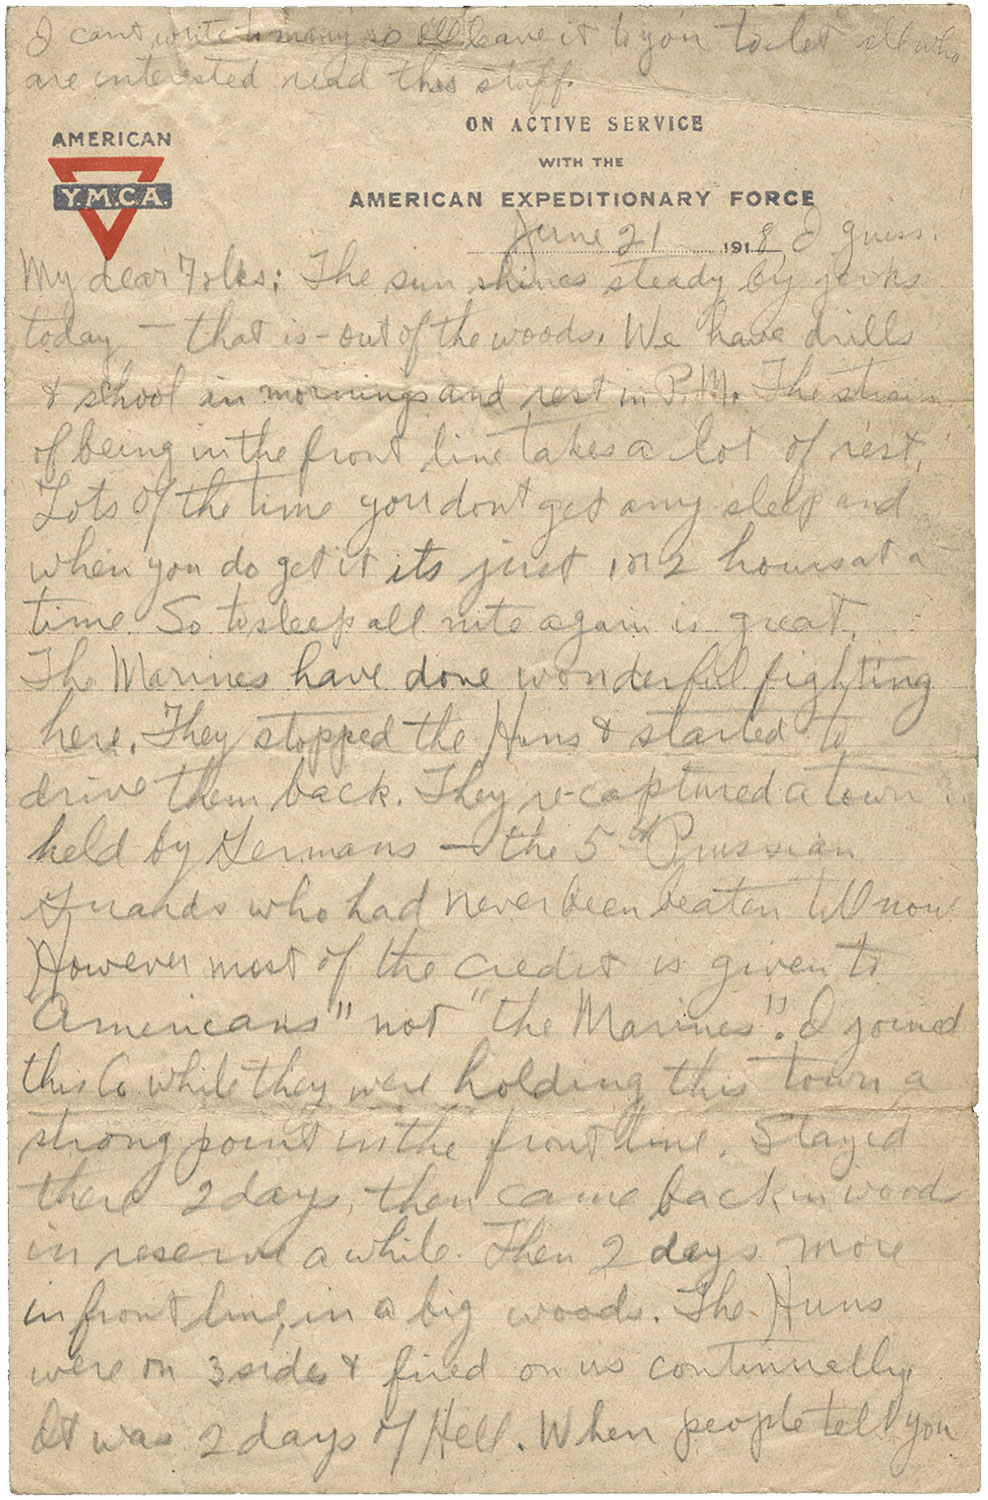 I cant write to many so Ill leave it to you to let all who
are interested read this stuff.
AMERICAN
Y.M.C.A.
ON ACTIVE SERVICE
WITH THE
AMERICAN EXPEDITIONARY FORCE
June 21 1918, I guess.
My dear Folks: The sun shines steady by jerks
today — that is - out of the woods. We have drills
& school in mornings and rest in P.M. The strain
of being in the front line takes a lot of rest.
Lots of the time you dont get any sleep and
when you do get it its just 1 or 2 hours at a
time. So to sleep all nite again is great.
The Marines have done wonderful fighting
here. They stopped the Huns & started to
drive them back. They re-captured a town
held by Germans — the 5th Prussian
Guards who had never been beaten till now.
However most of the credit is given to
"Americans" not "the Marines". I joined
this Co while they were holding this town, a
strong point in the front line. Stayed
there 2 days, then came back in wood
in reserve a while. Then 2 days more
in front line, in a big woods. The Huns
were on 3 sides & fired on us continually
It was 2 days of Hell. When people tell you